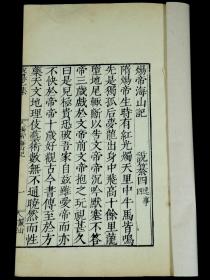 煬帝海山記
說纂四 逸事
隋煬帝生時有紅光燭天里中牛馬皆鳴
先是獨孤后夢龍出身中飛高十餘里龍
墮地尾輒斷以告文帝文帝沉吟默塞不答
帝三歲戲於文帝前文帝抱之玩視甚久
曰是兒極貴恐破吾家自茲雖愛帝而亦
不快於帝帝十歲好觀古今書傳至於方
藥天文地理伎藝術數無不通曉然而性